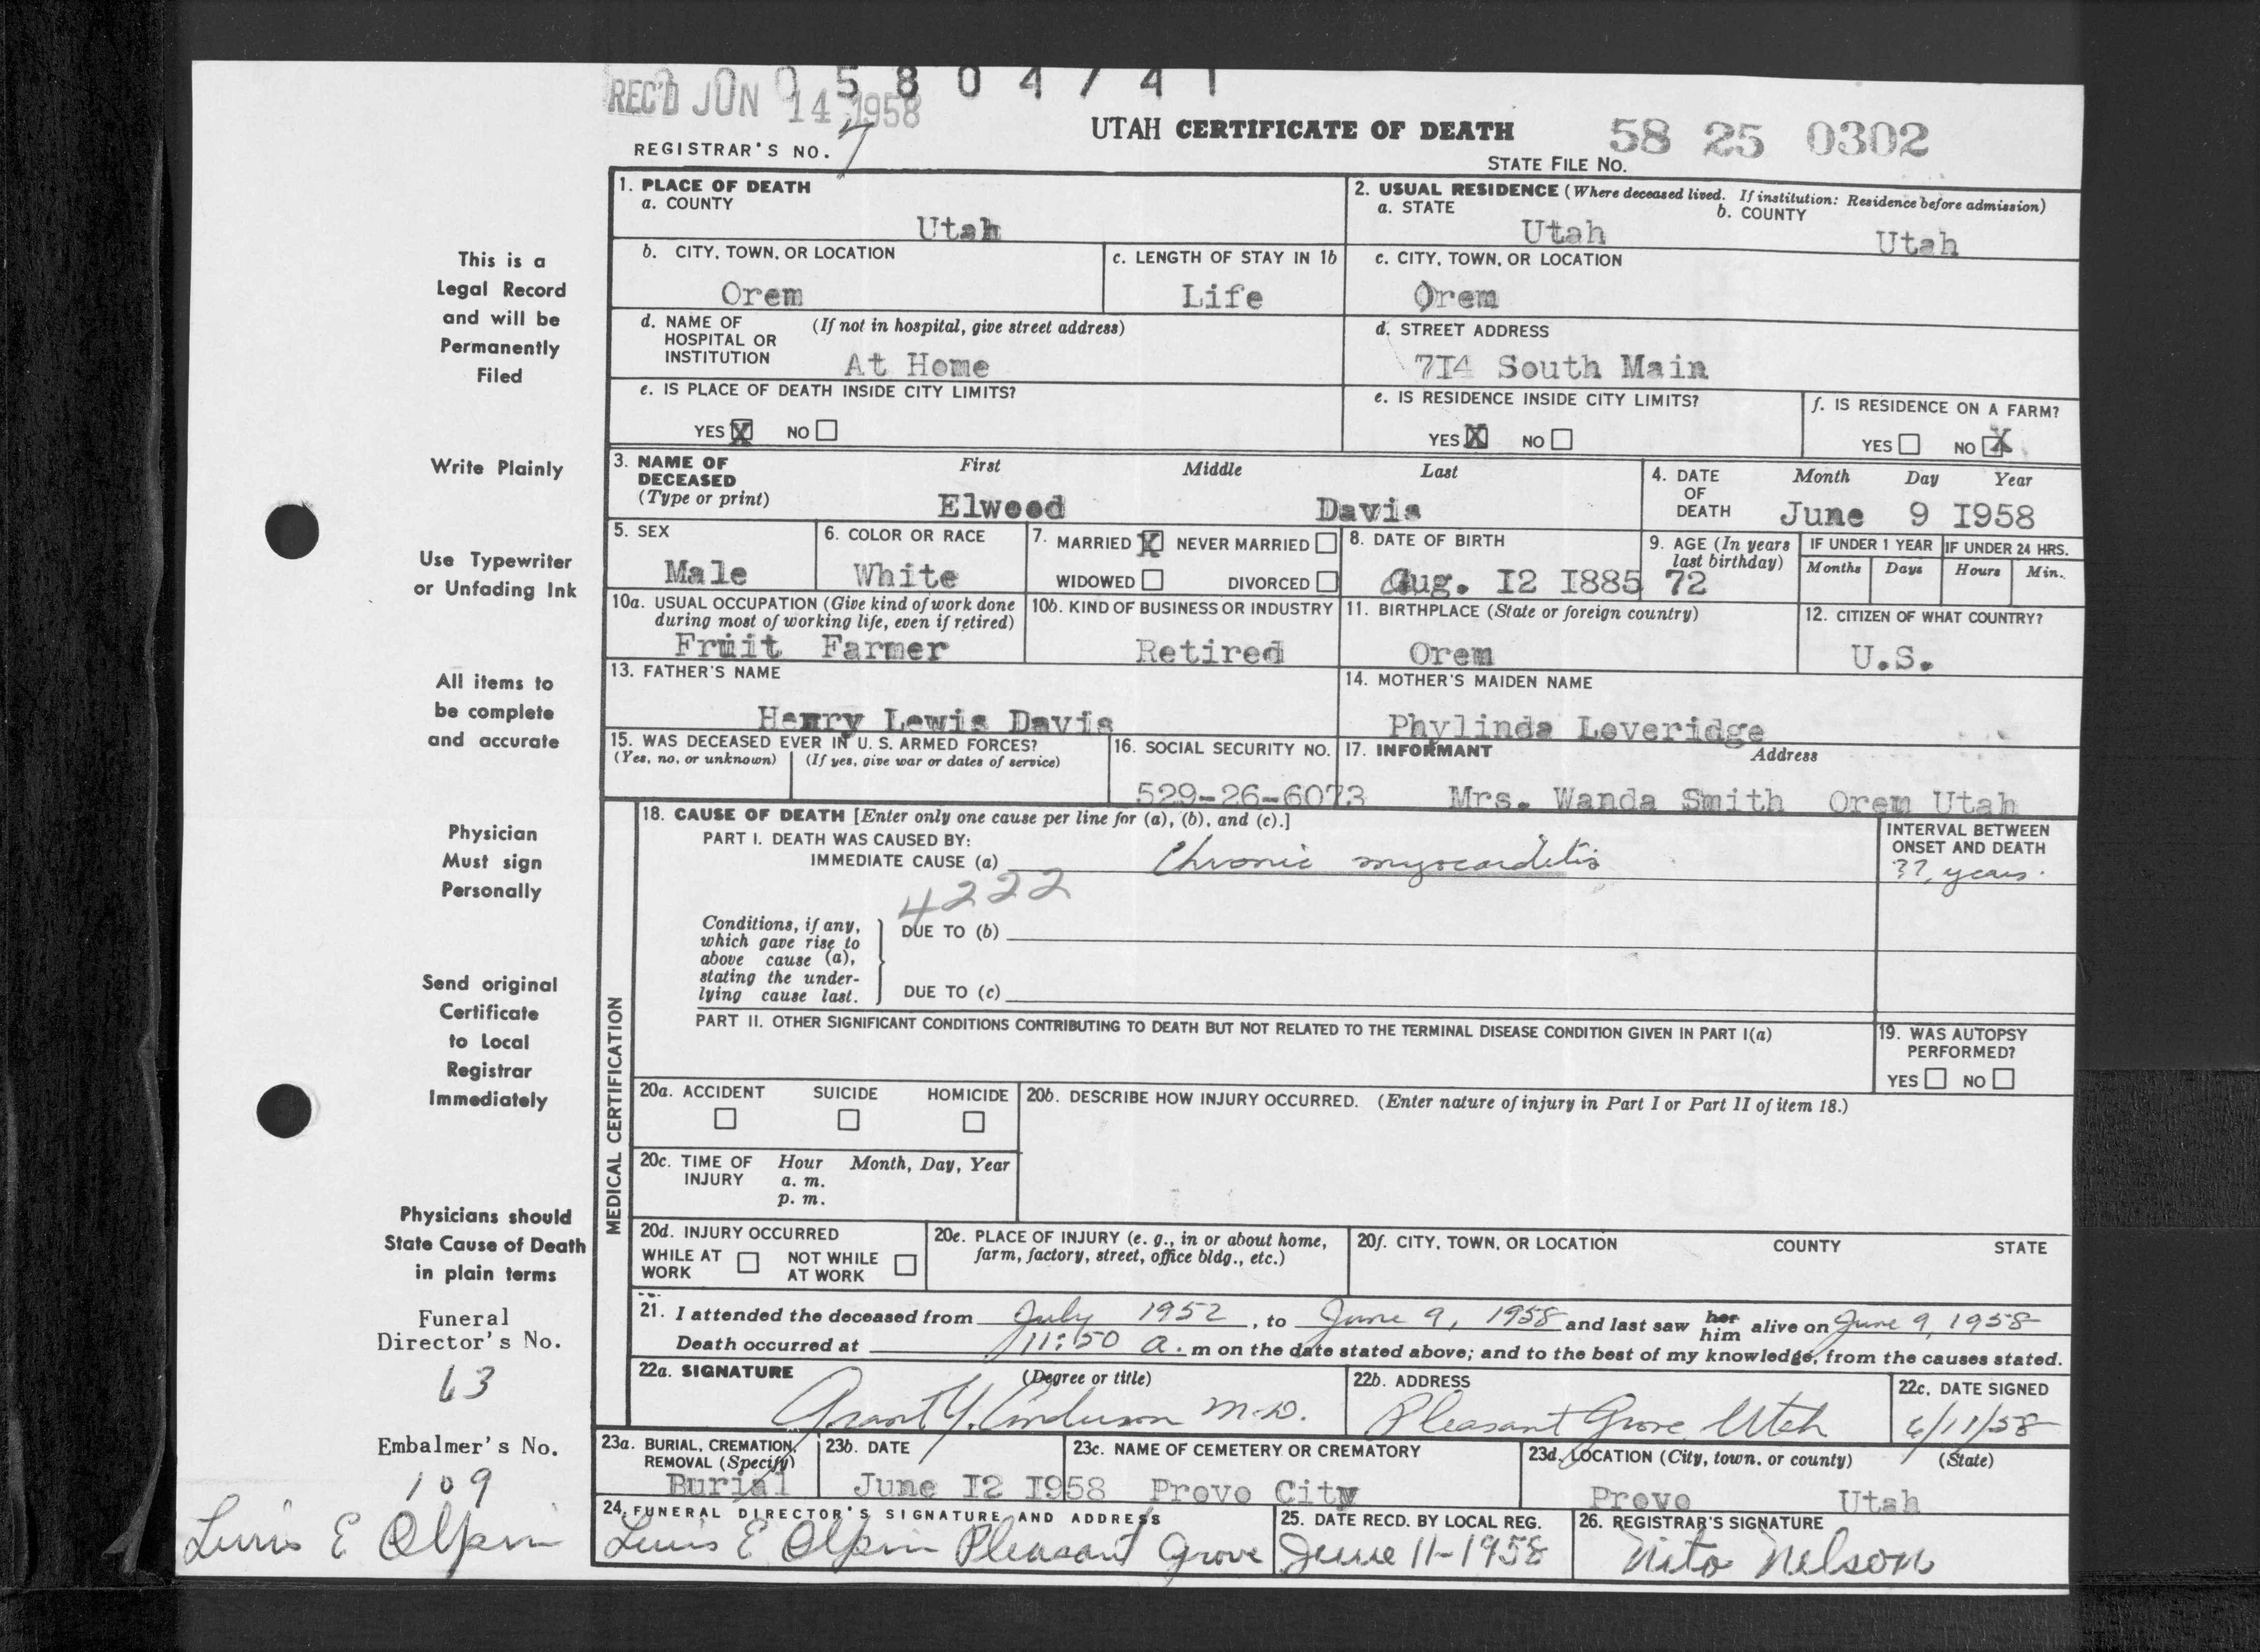 05804741
REC'D JUN 14 1958
UTAH CERTIFICATE OF DEATH
58 25 0302
REGISTRAR'S NO. 7
STATE FILE NO.
1. PLACE OF DEATH
a. COUNTY
Utah
2. USUAL RESIDENCE (Where deceased lived. If institution: Residence before admission)
a. STATE
Utah
b. COUNTY
Utah
b. CITY, TOWN, OR LOCATION
Orem
c. LENGTH OF STAY IN 1b
Life
c. CITY, TOWN, OR LOCATION
Orem
d. NAME OF HOSPITAL OR INSTITUTION (If not in hospital, give street address)
At Home
d. STREET ADDRESS
7I4 South Main
e. IS PLACE OF DEATH INSIDE CITY LIMITS?
YES X NO
e. IS RESIDENCE INSIDE CITY LIMITS?
YES X NO
f. IS RESIDENCE ON A FARM?
YES NO X
3. NAME OF DECEASED (Type or print)
First Middle Last
Elwood Davis
4. DATE OF DEATH
Month Day Year
June 9 I958
5. SEX
Male
6. COLOR OR RACE
White
7. MARRIED X NEVER MARRIED
WIDOWED DIVORCED
8. DATE OF BIRTH
Aug. I2 I885
9. AGE (In years last birthday)
72
IF UNDER 1 YEAR
Months Days
IF UNDER 24 HRS.
Hours Min.
10a. USUAL OCCUPATION (Give kind of work done during most of working life, even if retired)
Fruit Farmer
10b. KIND OF BUSINESS OR INDUSTRY
Retired
11. BIRTHPLACE (State or foreign country)
Orem
12. CITIZEN OF WHAT COUNTRY?
U.S.
13. FATHER'S NAME
Henry Lewis Davis
14. MOTHER'S MAIDEN NAME
Phylinda Loveridge
15. WAS DECEASED EVER IN U. S. ARMED FORCES?
(Yes, no, or unknown) (If yes, give war or dates of service)
16. SOCIAL SECURITY NO.
529-26-6073
17. INFORMANT Address
Mrs. Wanda Smith Orem Utah
MEDICAL CERTIFICATION
18. CAUSE OF DEATH [Enter only one cause per line for (a), (b), and (c).]
PART I. DEATH WAS CAUSED BY:
IMMEDIATE CAUSE (a) Chronic myocarditis
4222
INTERVAL BETWEEN ONSET AND DEATH
??, years.
Conditions, if any, which gave rise to above cause (a), stating the under-lying cause last.
DUE TO (b)
DUE TO (c)
PART II. OTHER SIGNIFICANT CONDITIONS CONTRIBUTING TO DEATH BUT NOT RELATED TO THE TERMINAL DISEASE CONDITION GIVEN IN PART I(a)
19. WAS AUTOPSY PERFORMED?
YES NO
20a. ACCIDENT SUICIDE HOMICIDE
20b. DESCRIBE HOW INJURY OCCURRED. (Enter nature of injury in Part I or Part II of item 18.)
20c. TIME OF INJURY
Hour Month, Day, Year
a. m.
p. m.
20d. INJURY OCCURRED
WHILE AT WORK NOT WHILE AT WORK
20e. PLACE OF INJURY (e. g., in or about home, farm, factory, street, office bldg., etc.)
20f. CITY, TOWN, OR LOCATION COUNTY STATE
21. I attended the deceased from July 1952, to June 9, 1958 and last saw her him alive on June 9, 1958
Death occurred at 11:50 a. m on the date stated above; and to the best of my knowledge, from the causes stated.
22a. SIGNATURE (Degree or title)
Grant Y. Anderson M.D.
22b. ADDRESS
Pleasant Grove, Utah
22c. DATE SIGNED
6/11/58
23a. BURIAL, CREMATION, REMOVAL (Specify)
Burial
23b. DATE
June I2 I958
23c. NAME OF CEMETERY OR CREMATORY
Provo City
23d. LOCATION (City, town, or county) (State)
Provo Utah
24. FUNERAL DIRECTOR'S SIGNATURE AND ADDRESS
Luris E Olpin Pleasant Grove
25. DATE RECD. BY LOCAL REG.
June 11-1958
26. REGISTRAR'S SIGNATURE
Nita Nelson
This is a
Legal Record
and will be
Permanently
Filed
Write Plainly
Use Typewriter
or Unfading Ink
All items to
be complete
and accurate
Physician
Must sign
Personally
Send original
Certificate
to Local
Registrar
Immediately
Physicians should
State Cause of Death
in plain terms
Funeral
Director's No.
63
Embalmer's No.
109
Luris E Olpin